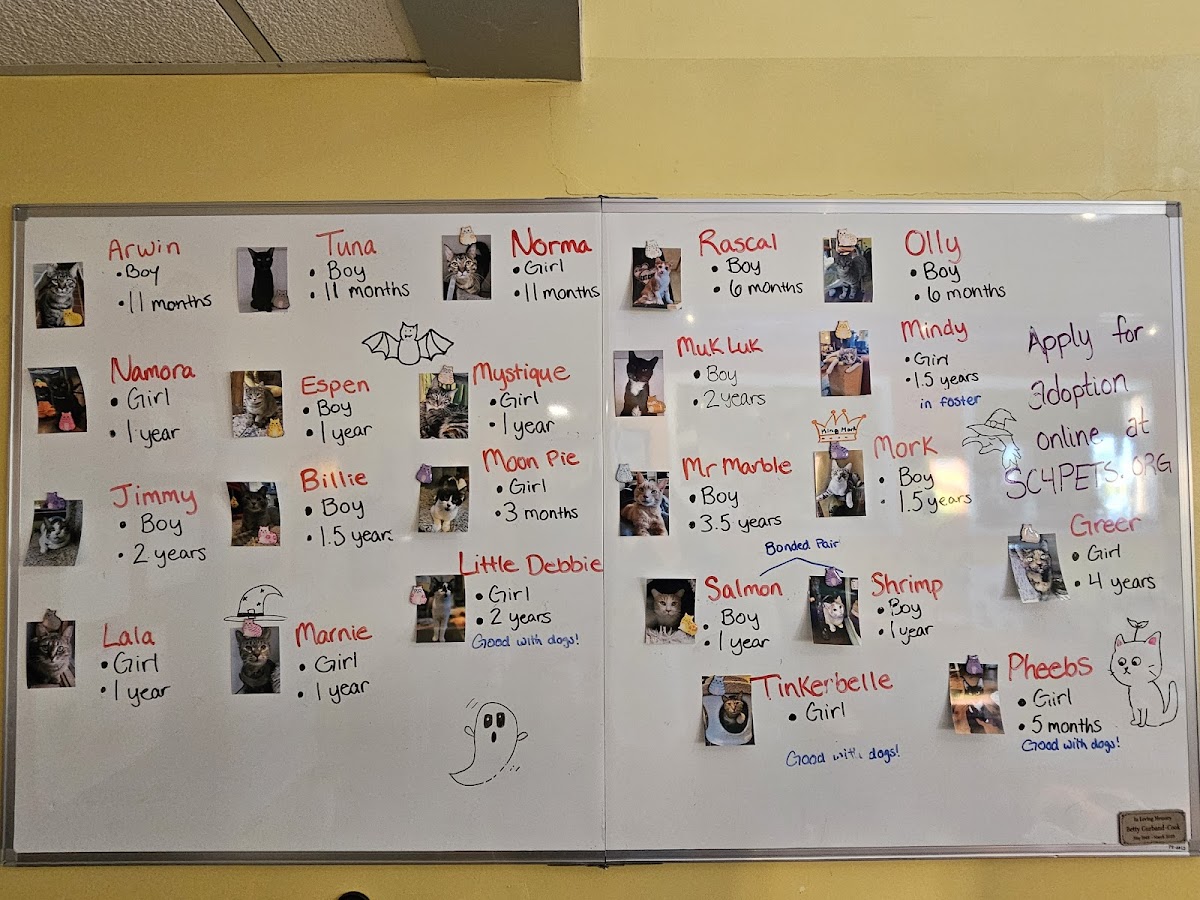 Arwin
• Boy
• 11 months
Tuna
• Boy
• 11 months
Norma
• Girl
• 11 months
Namora
• Girl
• 1 year
Espen
• Boy
• 1 year
Mystique
• Girl
• 1 year
Jimmy
• Boy
• 2 years
Billie
• Boy
• 1.5 years
Moon Pie
• Girl
• 3 months
Little Debbie
• Girl
• 2 years
Good with dogs!
Lala
• Girl
• 1 year
Marnie
• Girl
• 1 year
Rascal
• Boy
• 6 months
Olly
• Boy
• 6 months
Muk Luk
• Boy
• 2 years
Mindy
• Girl
• 1.5 years
in foster
Apply for
adoption
online at
SC4PETS.ORG
Mr Marble
• Boy
• 3.5 years
King Mork
Mork
• Boy
• 1.5 years
Greer
• Girl
• 4 years
Bonded Pair
Salmon
• Boy
• 1 year
Shrimp
• Boy
• 1 year
Tinkerbelle
• Girl
Good with dogs!
Pheebs
• Girl
• 5 months
Good with dogs!
In Loving Memory